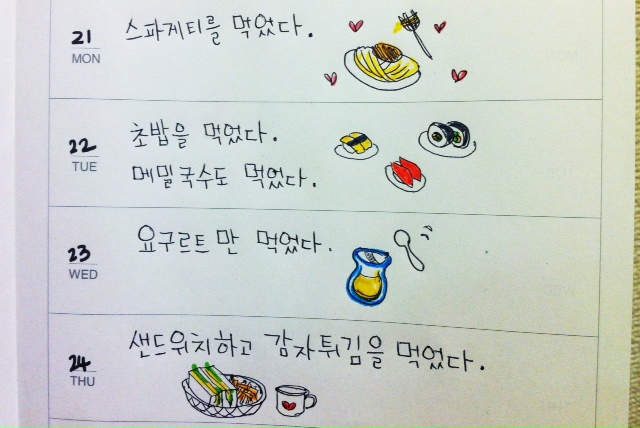 21 스파게티를 먹었다.
MON
22 초밥을 먹었다.
TUE 메밀국수도 먹었다.
23 요구르트만 먹었다.
WED
24 샌드위치하고 감자튀김을 먹었다.
THU